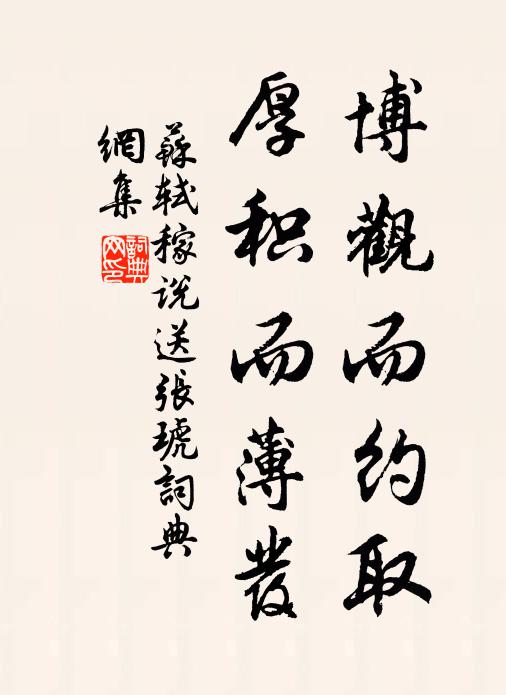 博觀而約取
厚积而薄發
蘇軾稼说送張琥詞典
網集
詞典
网印